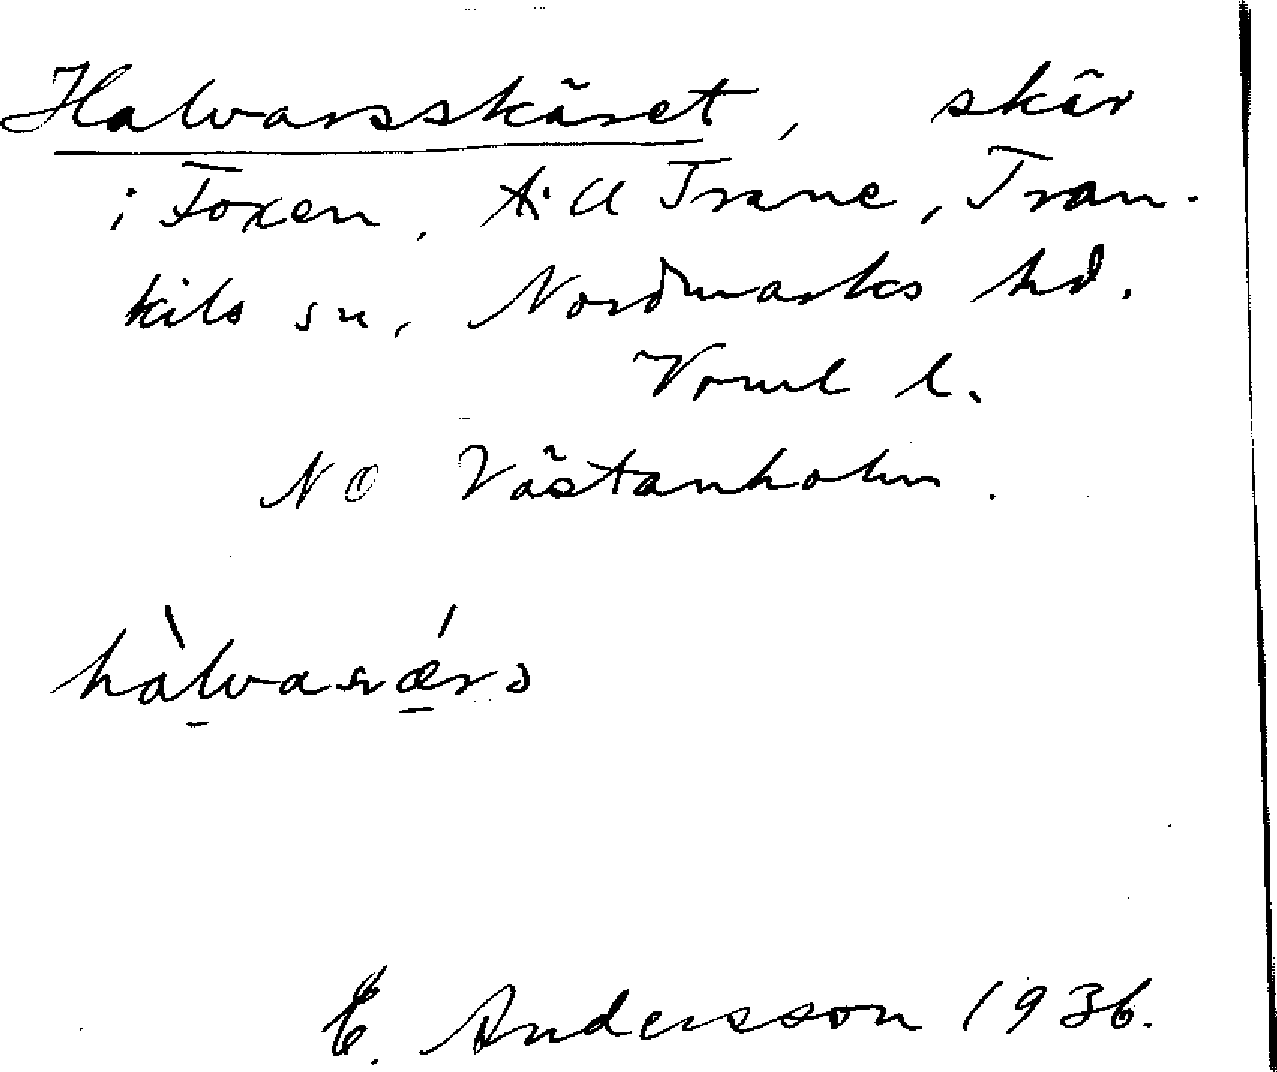 Halvarsskäret, skär
i Foxen, till Trane, Tran-
kils sn, Nordmarks hd.
Vrml l.
NO Västanholm.
E. Andersson 1936.